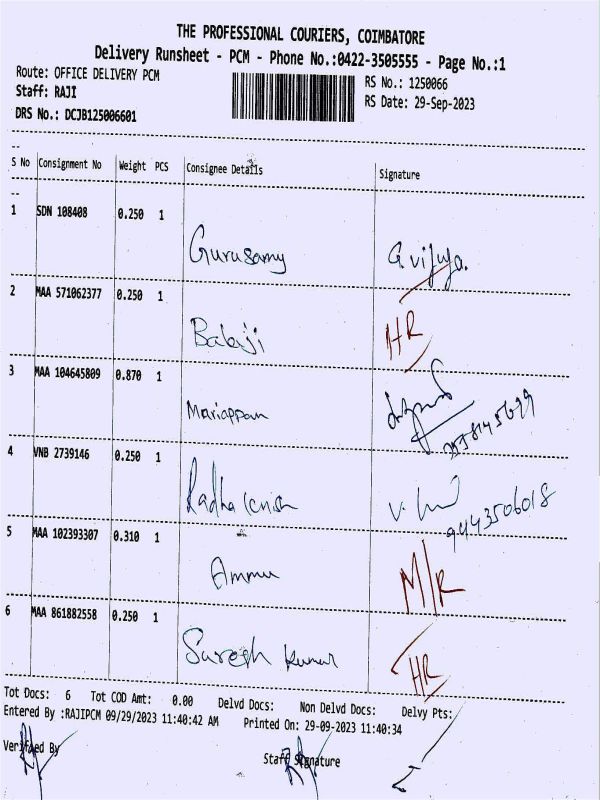 THE PROFESSIONAL COURIERS, COIMBATORE
Delivery Runsheet - PCM - Phone No.:0422-3505555 - Page No.:1
Route: OFFICE DELIVERY PCM RS No.: 1250066
Staff: RAJI RS Date: 29-Sep-2023
DRS No.: DCJB125006601
S No Consignment No Weight PCS Consignee Details Signature
1 SDN 108408 0.250 1
Gurusamy G vijaya.
2 MAA 571062377 0.250 1
Balaji HR
3 MAA 104645809 0.870 1
Mariappan
4 VNB 2739146 0.250 1
Radha
9443506018
5 MAA 102393307 0.310 1
Ammu M/R
6 MAA 861882558 0.250 1
Suresh Kumar HR
Tot Docs: 6 Tot COD Amt: 0.00 Delvd Docs: Non Delvd Docs: Delvy Pts:
Entered By :RAJIPCM 09/29/2023 11:40:42 AM Printed On: 29-09-2023 11:40:34
Verified By Staff Signature